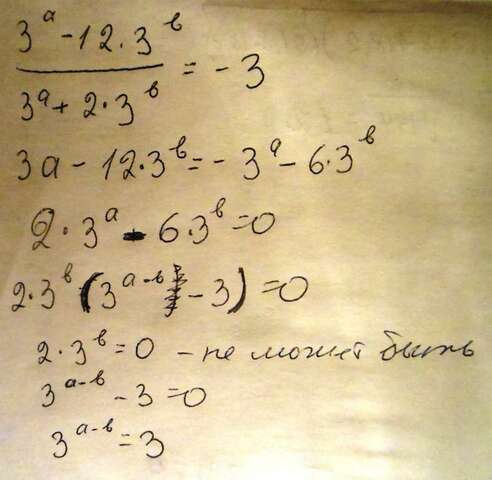 3^a - 12·3^b
3^a + 2·3^b = -3
3a - 12·3^b = -3^a - 6·3^b
2·3^a - 6·3^b = 0
2·3^b (3^(a-b) - 3) = 0
2·3^b = 0 - не может быть
3^(a-b) - 3 = 0
3^(a-b) = 3